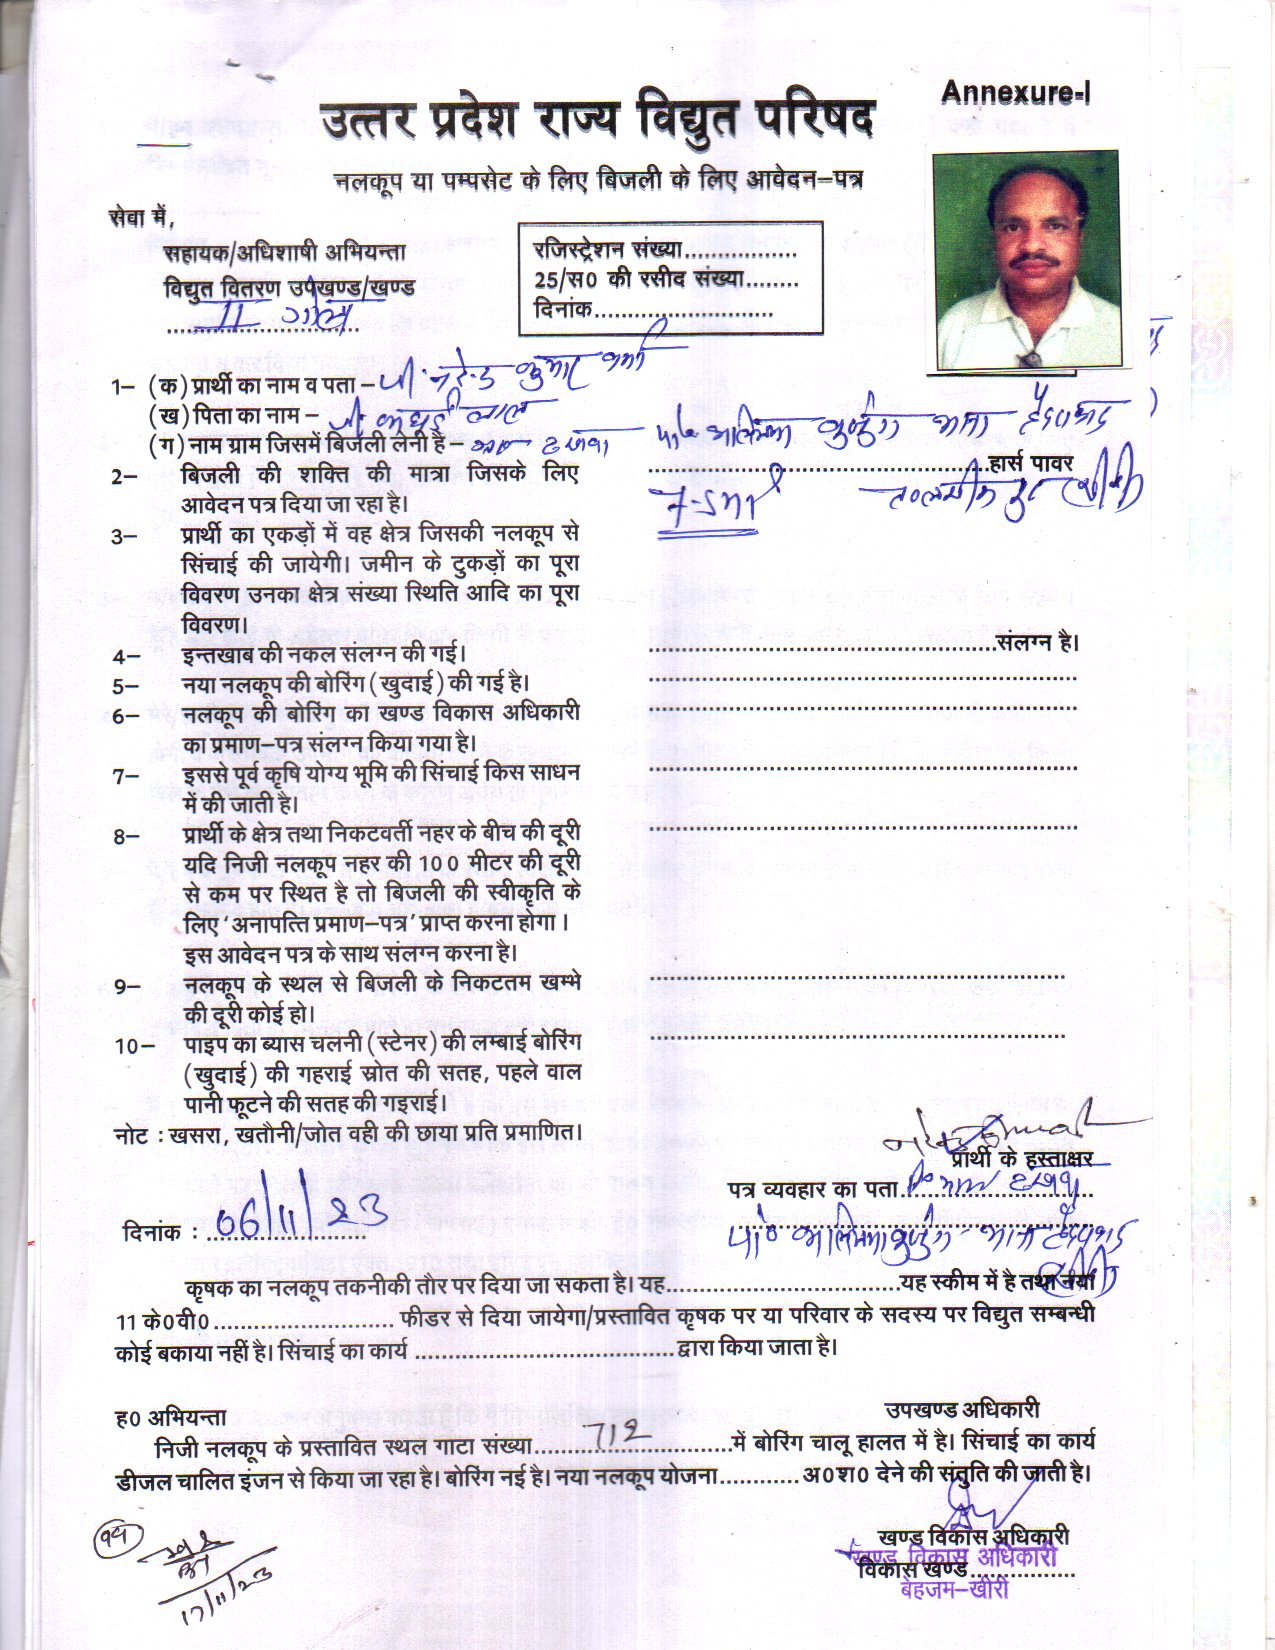 Annexure-I
उत्तर प्रदेश राज्य विद्युत परिषद
नलकूप या पम्पसेट के लिए बिजली के लिए आवेदन–पत्र
सेवा में,
सहायक/अधिशाषी अभियन्ता
विद्युत वितरण उपखण्ड/खण्ड
II गोला
रजिस्ट्रेशन संख्या.................
25/स0 की रसीद संख्या........
दिनांक..........................
1– (क) प्रार्थी का नाम व पता – कुमार वर्मा
(ख) पिता का नाम – लाल
(ग) नाम ग्राम जिसमें बिजली लेनी है –
2– बिजली की शक्ति की मात्रा जिसके लिए ......................................हार्स पावर
आवेदन पत्र दिया जा रहा है।
3– प्रार्थी का एकड़ों में वह क्षेत्र जिसकी नलकूप से
सिंचाई की जायेगी। जमीन के टुकड़ों का पूरा
विवरण उनका क्षेत्र संख्या स्थिति आदि का पूरा
विवरण।
4– इन्तखाब की नकल संलग्न की गई। ......................................संलग्न है।
5– नया नलकूप की बोरिंग (खुदाई) की गई है। ......................................
6– नलकूप की बोरिंग का खण्ड विकास अधिकारी ......................................
का प्रमाण–पत्र संलग्न किया गया है।
7– इससे पूर्व कृषि योग्य भूमि की सिंचाई किस साधन ......................................
में की जाती है।
8– प्रार्थी के क्षेत्र तथा निकटवर्ती नहर के बीच की दूरी ......................................
यदि निजी नलकूप नहर की 100 मीटर की दूरी
से कम पर स्थित है तो बिजली की स्वीकृति के
लिए ‘अनापत्ति प्रमाण–पत्र’ प्राप्त करना होगा।
इस आवेदन पत्र के साथ संलग्न करना है।
9– नलकूप के स्थल से बिजली के निकटतम खम्भे ......................................
की दूरी कोई हो।
10– पाइप का ब्यास चलनी (स्टेनर) की लम्बाई बोरिंग ......................................
(खुदाई) की गहराई स्रोत की सतह, पहले वाल
पानी फूटने की सतह की गइराई।
नोट : खसरा, खतौनी/जोत वही की छाया प्रति प्रमाणित।
प्रार्थी के हस्ताक्षर
पत्र व्यवहार का पता
दिनांक : 06/11/23
कृषक का नलकूप तकनीकी तौर पर दिया जा सकता है। यह..................................यह स्कीम में है तथा नया
11 के0वी0.......................... फीडर से दिया जायेगा/प्रस्तावित कृषक पर या परिवार के सदस्य पर विद्युत सम्बन्धी
कोई बकाया नहीं है। सिंचाई का कार्य .....................................द्वारा किया जाता है।
ह0 अभियन्ता उपखण्ड अधिकारी
निजी नलकूप के प्रस्तावित स्थल गाटा संख्या.......712............में बोरिंग चालू हालत में है। सिंचाई का कार्य
डीजल चालित इंजन से किया जा रहा है। बोरिंग नई है। नया नलकूप योजना...........अ0श0 देने की संतुति की जाती है।
खण्ड विकास अधिकारी
खण्ड विकास अधिकारी
विकास खण्ड................
बेहजम–खीरी
17/11/23